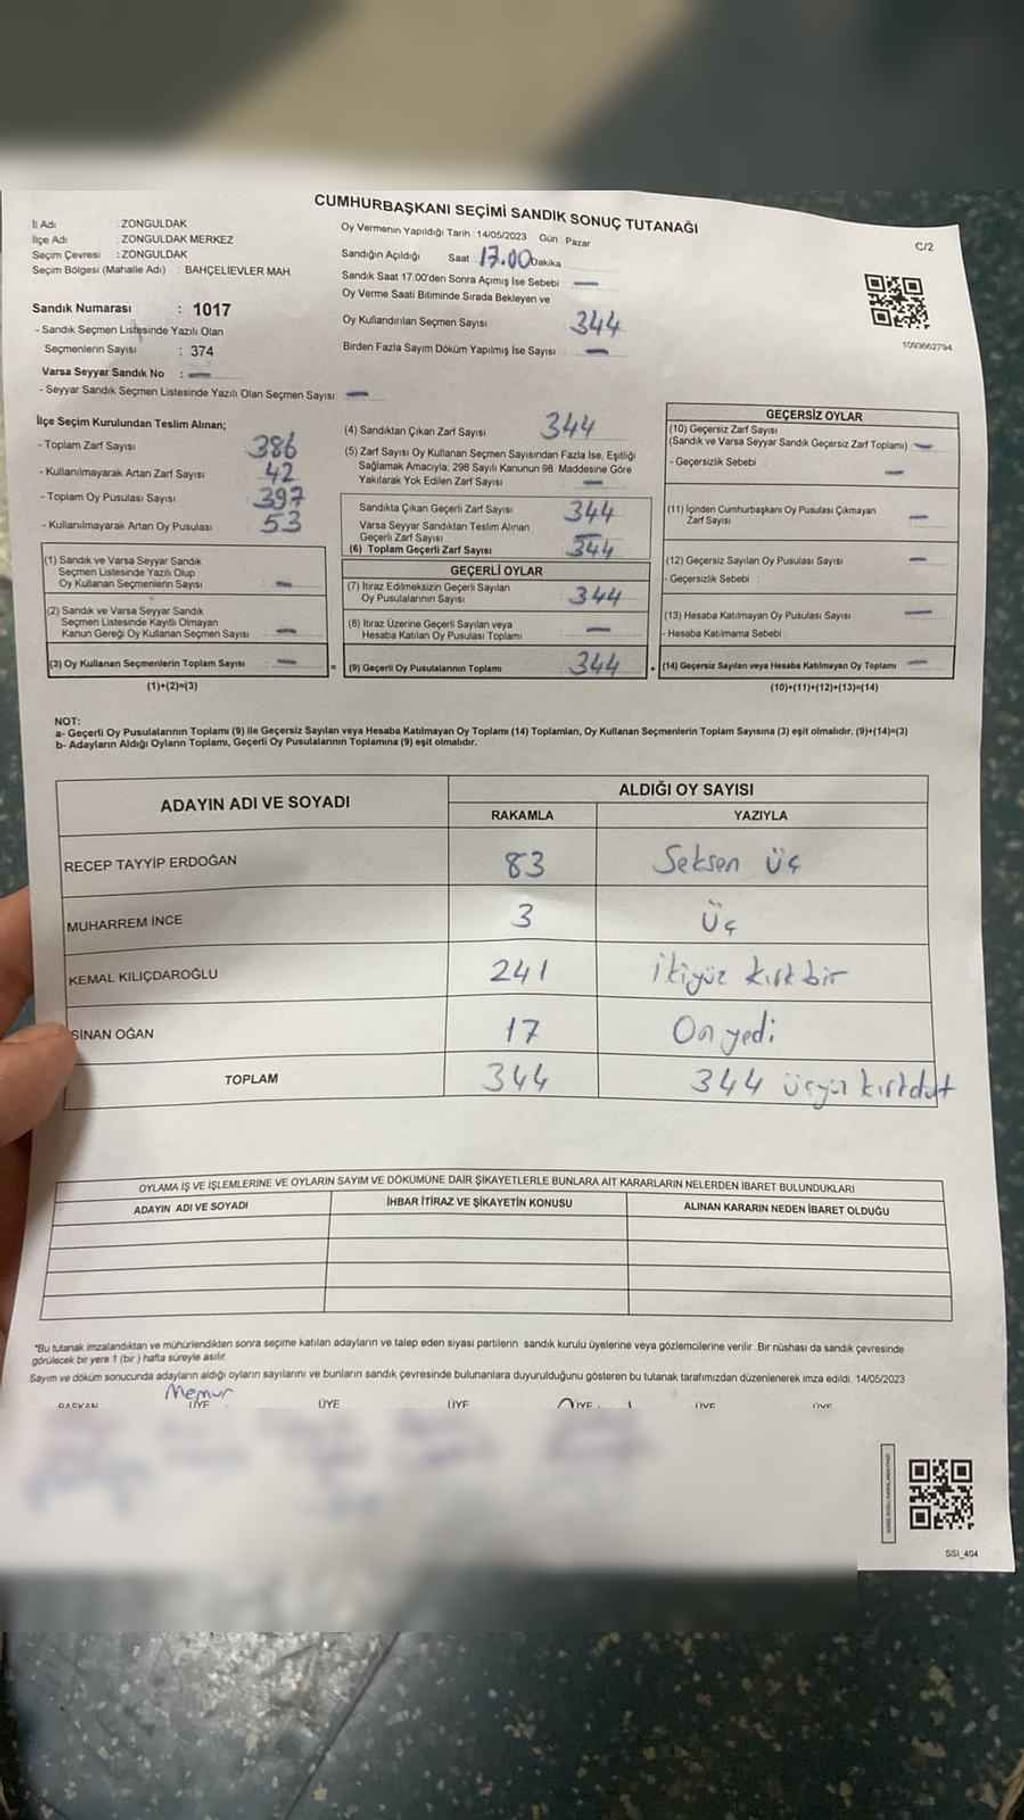 CUMHURBAŞKANI SEÇİMİ SANDIK SONUÇ TUTANAĞI
C/2
İl Adı : ZONGULDAK
İlçe Adı : ZONGULDAK MERKEZ
Seçim Çevresi : ZONGULDAK
Seçim Bölgesi (Mahalle Adı) : BAHÇELİEVLER MAH.
Sandık Numarası : 1017
- Sandık Seçmen Listesinde Yazılı Olan
Seçmenlerin Sayısı : 374
Varsa Seyyar Sandık No : —
- Seyyar Sandık Seçmen Listesinde Yazılı Olan Seçmen Sayısı : —
Oy Vermenin Yapıldığı Tarih : 14/05/2023 Gün : Pazar
Sandığın Açıldığı Saat : 17.00 Dakika
Sandık Saat 17.00'den Sonra Açımış İse Sebebi —
Oy Verme Saati Bitiminde Sırada Bekleyen ve
Oy Kullandırılan Seçmen Sayısı 344
Birden Fazla Sayım Döküm Yapılmış İse Sayısı —
1093662794
İlçe Seçim Kurulundan Teslim Alınan;
- Toplam Zarf Sayısı 386
- Kullanılmayarak Artan Zarf Sayısı 42
- Toplam Oy Pusulası Sayısı 397
- Kullanılmayarak Artan Oy Pusulası 53
(1) Sandık ve Varsa Seyyar Sandık
Seçmen Listesinde Yazılı Olup
Oy Kullanan Seçmenlerin Sayısı —
(2) Sandık ve Varsa Seyyar Sandık
Seçmen Listesinde Kayıtlı Olmayan
Kanun Gereği Oy Kullanan Seçmen Sayısı —
(3) Oy Kullanan Seçmenlerin Toplam Sayısı —
(1)+(2)=(3)
(4) Sandıktan Çıkan Zarf Sayısı 344
(5) Zarf Sayısı Oy Kullanan Seçmen Sayısından Fazla İse, Eşitliği
Sağlamak Amacıyla; 298 Sayılı Kanunun 98. Maddesine Göre
Yakılarak Yok Edilen Zarf Sayısı —
Sandıkta Çıkan Geçerli Zarf Sayısı 344
Varsa Seyyar Sandıktan Teslim Alınan
Geçerli Zarf Sayısı —
(6) Toplam Geçerli Zarf Sayısı 344
GEÇERLİ OYLAR
(7) İtiraz Edilmeksizin Geçerli Sayılan
Oy Pusulalarının Sayısı 344
(8) İtiraz Üzerine Geçerli Sayılan veya
Hesaba Katılan Oy Pusulası Toplamı —
(9) Geçerli Oy Pusulalarının Toplamı 344
GEÇERSİZ OYLAR
(10) Geçersiz Zarf Sayısı
(Sandık ve Varsa Seyyar Sandık Geçersiz Zarf Toplamı) —
- Geçersizlik Sebebi —
(11) İçinden Cumhurbaşkanı Oy Pusulası Çıkmayan
Zarf Sayısı —
(12) Geçersiz Sayılan Oy Pusulası Sayısı —
- Geçersizlik Sebebi :
(13) Hesaba Katılmayan Oy Pusulası Sayısı —
- Hesaba Katılmama Sebebi
(14) Geçersiz Sayılan veya Hesaba Katılmayan Oy Toplamı —
(10)+(11)+(12)+(13)=(14)
NOT:
a- Geçerli Oy Pusulalarının Toplamı (9) ile Geçersiz Sayılan veya Hesaba Katılmayan Oy Toplamı (14) Toplamları, Oy Kullanan Seçmenlerin Toplam Sayısına (3) eşit olmalıdır. (9)+(14)=(3)
b- Adayların Aldığı Oyların Toplamı, Geçerli Oy Pusulalarının Toplamına (9) eşit olmalıdır.
ADAYIN ADI VE SOYADI
ALDIĞI OY SAYISI
RAKAMLA YAZIYLA
RECEP TAYYİP ERDOĞAN 83 Seksen üç
MUHARREM İNCE 3 Üç
KEMAL KILIÇDAROĞLU 241 ikiyüz kırk bir
SİNAN OĞAN 17 On yedi
TOPLAM 344 344 üçyüz kırkdört
OYLAMA İŞ VE İŞLEMLERİNE VE OYLARIN SAYIM VE DÖKÜMÜNE DAİR ŞİKAYETLERLE BUNLARA AİT KARARLARIN NELERDEN İBARET BULUNDUKLARI
ADAYIN ADI VE SOYADI İHBAR İTİRAZ VE ŞİKAYETİN KONUSU ALINAN KARARIN NEDEN İBARET OLDUĞU
"Bu tutanak imzalandıktan ve mühürlendikten sonra seçime katılan adayların ve talep eden siyasi partilerin sandık kurulu üyelerine veya gözlemcilerine verilir. Bir nüshası da sandık çevresinde
görülecek bir yere 1 (bir) hafta süreyle asılır.
Sayım ve döküm sonucunda adayların aldığı oyların sayılarını ve bunların sandık çevresinde bulunanlara duyurulduğunu gösteren bu tutanak tarafımızdan düzenlenerek imza edildi. 14/05/2023
Memur
BAŞKAN ÜYE ÜYE ÜYE ÜYE ÜYE ÜYE
SSI_404